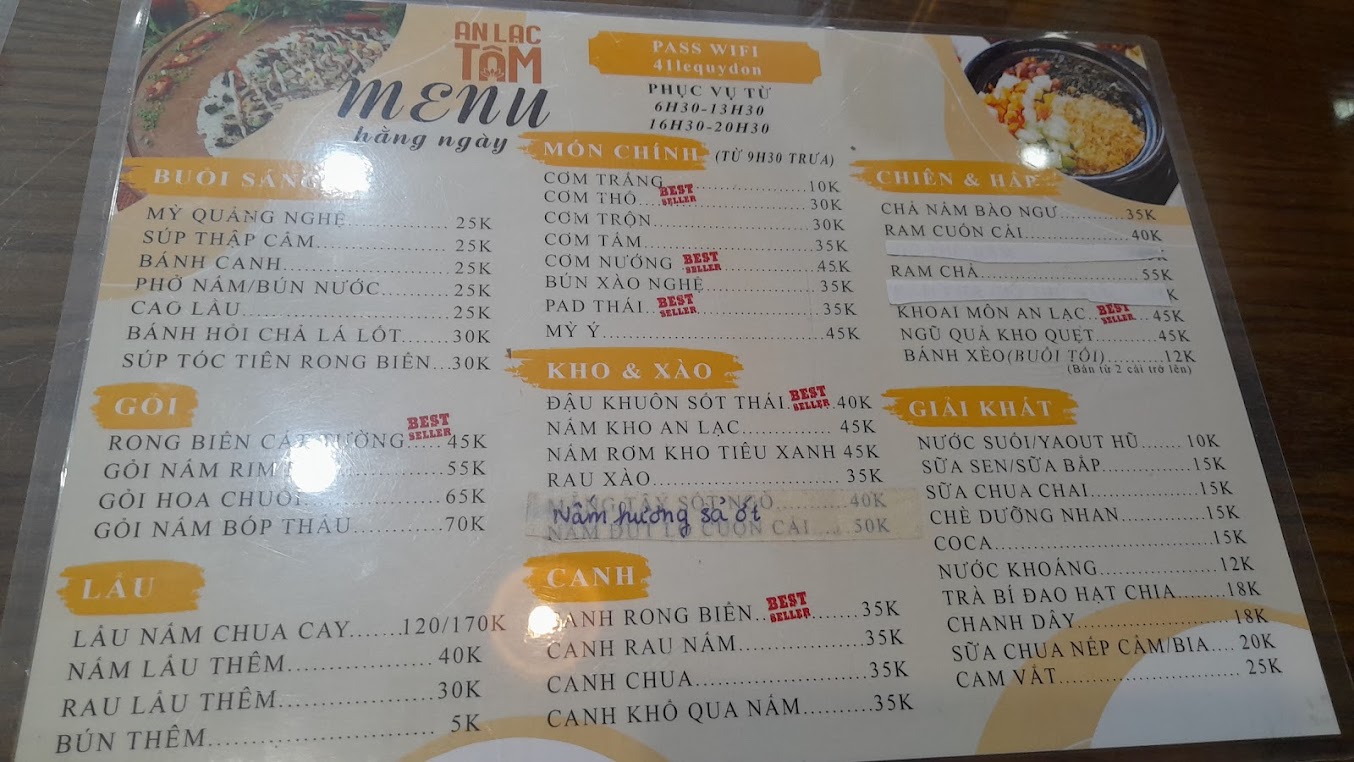 AN LẠC
TÂM
MENU
hằng ngày
PASS WIFI
41lequydon
PHỤC VỤ TỪ
6H30-13H30
16H30-20H30
BUỔI SÁNG
MỲ QUẢNG NGHỆ 25K
SÚP THẬP CẨM 25K
BÁNH CANH 25K
PHỞ NẤM/BÚN NƯỚC 25K
CAO LẦU 25K
BÁNH HỎI CHẢ LÁ LỐT 30K
SÚP TÓC TIÊN RONG BIỂN 30K
GỎI
RONG BIỂN CÁT TƯỜNG BEST SELLER 45K
GỎI NẤM RIM 55K
GỎI HOA CHUỐI 65K
GỎI NẤM BÓP THẤU 70K
LẨU
LẨU NẤM CHUA CAY 120/170K
NẤM LẨU THÊM 40K
RAU LẨU THÊM 30K
BÚN THÊM 5K
MÓN CHÍNH (TỪ 9H30 TRƯA)
CƠM TRẮNG 10K
CƠM THỐ BEST SELLER 30K
CƠM TRỘN 30K
CƠM TẤM 35K
CƠM NƯỚNG BEST SELLER 45K
BÚN XÀO NGHỆ 35K
PAD THÁI BEST SELLER 35K
MỲ Ý 45K
KHO & XÀO
ĐẬU KHUÔN SỐT THÁI BEST SELLER 40K
NẤM KHO AN LẠC 45K
NẤM RƠM KHO TIÊU XANH 45K
RAU XÀO 35K
MĂNG TÂY SỐT NGÔ 40K
Nấm hương sả ớt
NẤM ĐÚT LÒ CUỘN CẢI 50K
CANH
CANH RONG BIỂN BEST SELLER 35K
CANH RAU NẤM 35K
CANH CHUA 35K
CANH KHỔ QUA NẤM 35K
CHIÊN & HẤP
CHẢ NẤM BÀO NGƯ 35K
RAM CUỐN CẢI 40K
RAM CHẢ 55K
KHOAI MÔN AN LẠC BEST SELLER 45K
NGŨ QUẢ KHO QUẸT 45K
BÁNH XÈO(BUỔI TỐI) 12K
(Bán từ 2 cái trở lên)
GIẢI KHÁT
NƯỚC SUỐI/YAOUT HŨ 10K
SỮA SEN/SỮA BẮP 15K
SỮA CHUA CHAI 15K
CHÈ DƯỠNG NHAN 15K
COCA 15K
NƯỚC KHOÁNG 12K
TRÀ BÍ ĐAO HẠT CHIA 18K
CHANH DÂY 18K
SỮA CHUA NẾP CẨM/BIA 20K
CAM VẮT 25K